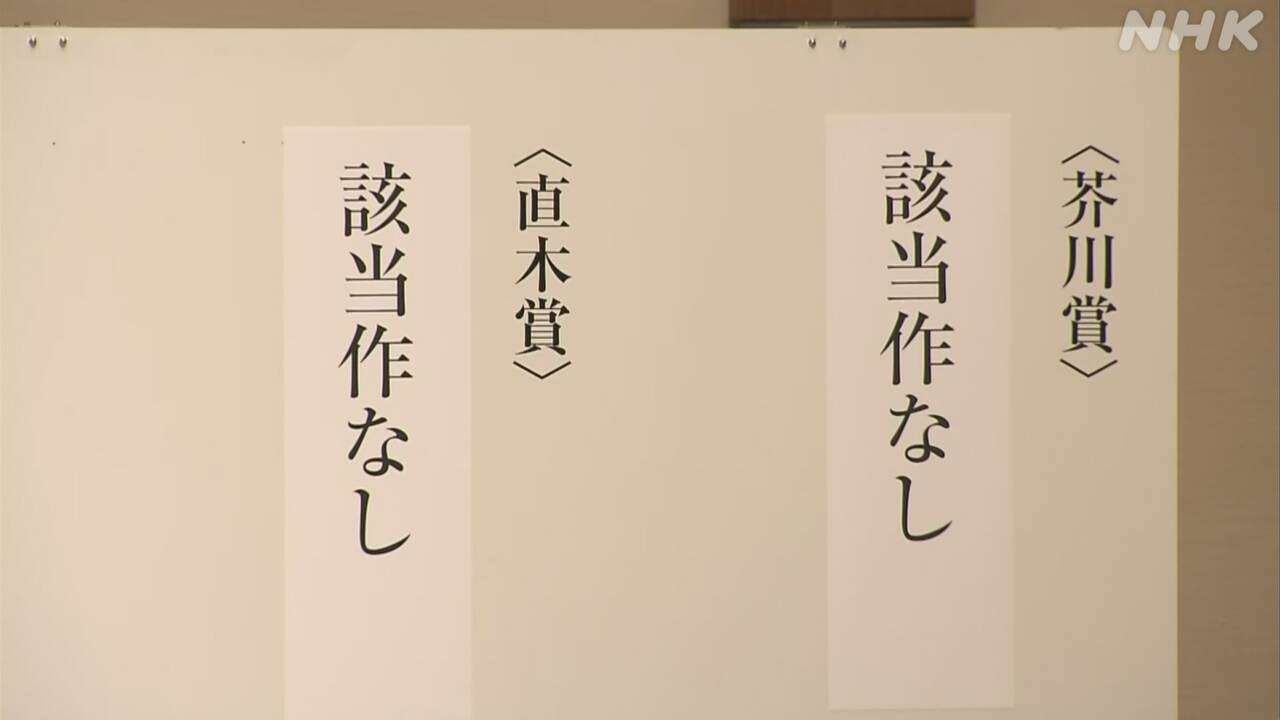 〈芥川賞〉
該当作なし
〈直木賞〉
該当作なし
NHK